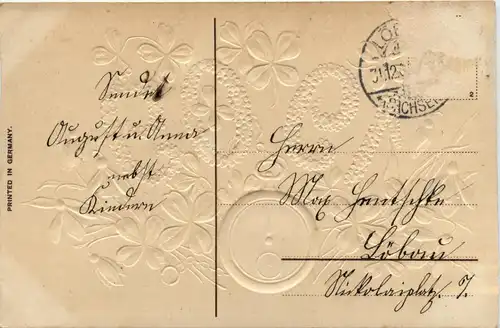 PRINTED IN GERMANY.
Sendet
August u. Anna
nebst
Kindern
31.12.
2
Herrn
Max Hentschke
Löbau
Nickolaiplatz. 7.